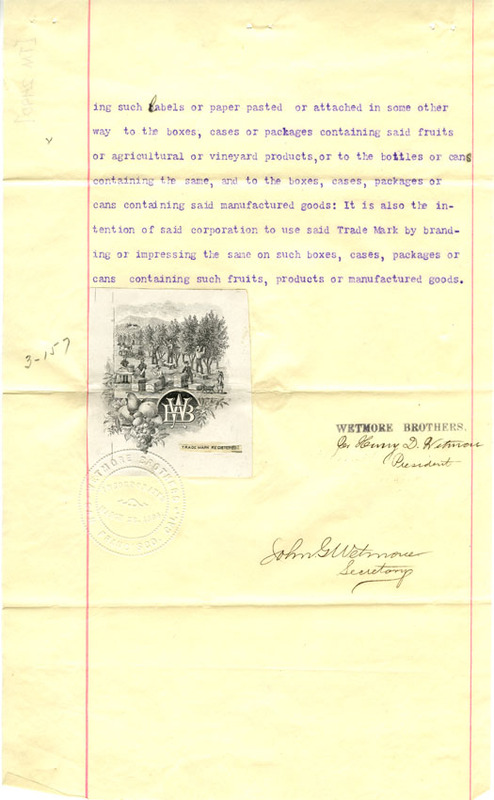 ing such labels or paper pasted or attached in some other
way to the boxes, cases or packages containing said fruits
or agricultural or vineyard products,or to the bottles or cans
containing the same, and to the boxes, cases, packages or
cans containing said manufactured goods: It is also the in-
tention of said corporation to use said Trade Mark by brand-
ing or impressing the same on such boxes, cases, packages or
cans containing such fruits, products or manufactured goods.
3-157
WB
TRADE MARK REGISTERED
WETMORE BROTHERS.
Henry D. Wetmore
President
WETMORE BROTHERS
INCORPORATED
SAN FRANCISCO, CAL.
John G Wetmore
Secretary